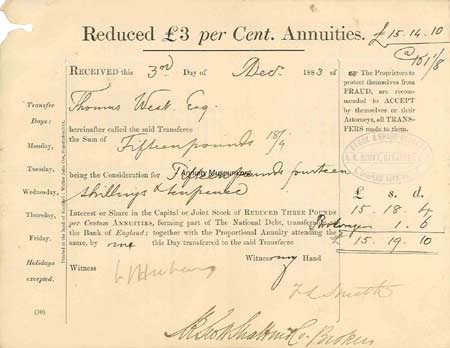 Reduced £3 per Cent. Annuities.
£15.14.10
@ 101 1/8
RECEIVED this 3rd Day of Decr 1883 of
Thomas West Esq.
hereinafter called the said Transferee
the Sum of Fifteen pounds 18/4
being the Consideration for Fifteen pounds fourteen
shillings & tenpence
Interest or Share in the Capital or Joint Stock of REDUCED THREE POUNDS
per Centum ANNUITIES, forming part of The National Debt, transferable at
the Bank of England; together with the Proportional Annuity attending the
same, by me this Day transferred to the said Transferee
Witness my Hand
Witness
Brokers
Transfer
Days:
Monday,
Tuesday,
Wednesday,
Thursday,
Friday,
Holidays
excepted.
The Proprietors to
protect themselves from
FRAUD, are recom-
mended to ACCEPT
by themselves or their
Attorneys, all TRANS-
FERS made to them.
£ s. d.
15.18.4
1.6
£ 15.19.10